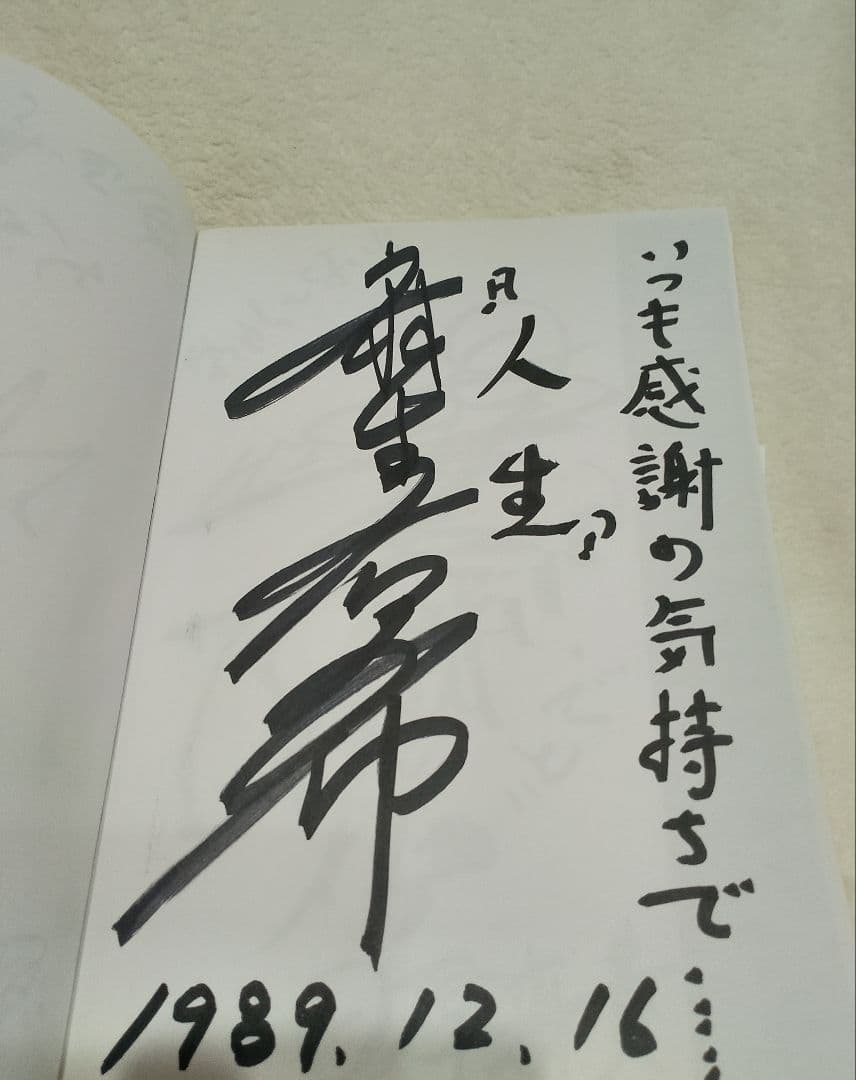 いつも感謝の気持ちで……
凡人生
麻生
1989.12.16